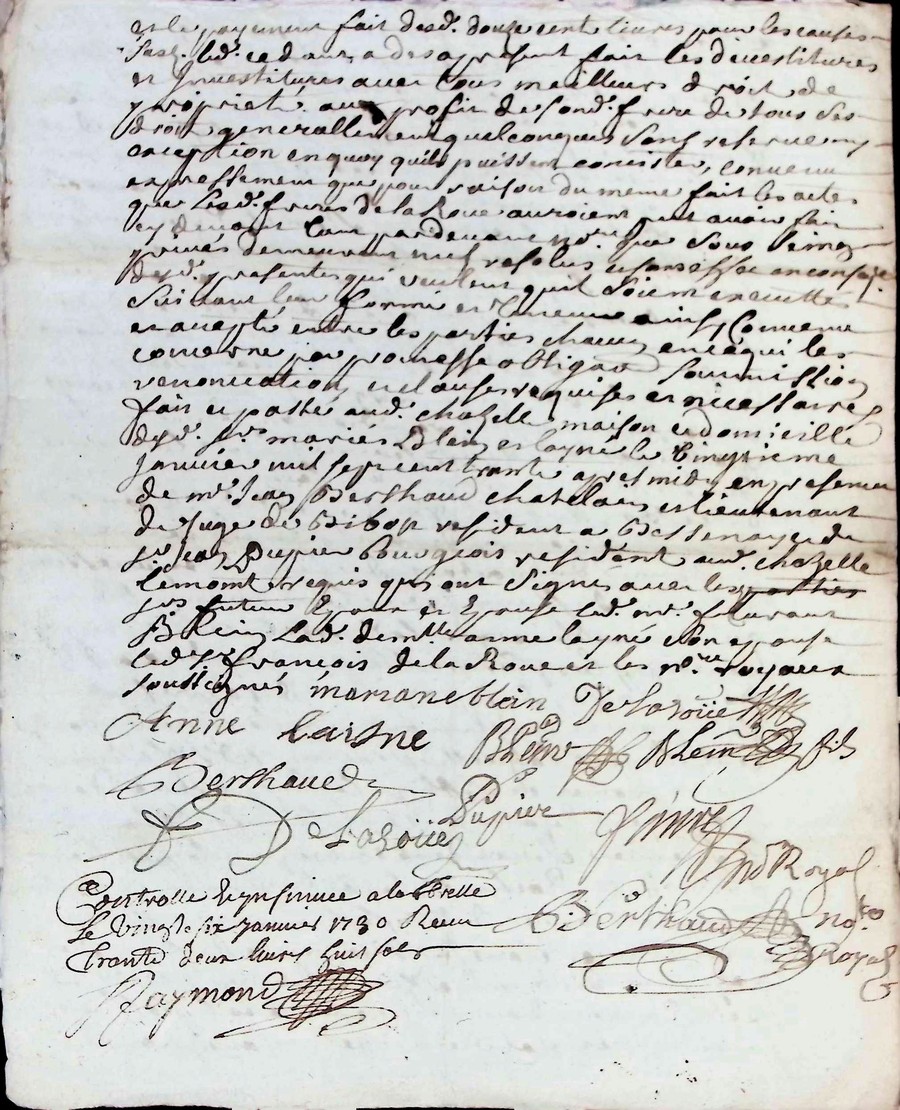 et le payement fait desd. douse cent livres pour les causes
susd. led. cedant a des a present fait les divestitures
et Investitures avec tous meilleurs droit de
propriete au profit de sond. frere de tous ses
droit generallement quelconques sans reserve ny
exception en quoy quils puissent concister, convenu
expressement que pour raison du meme fait les actes
que lesd. freres de la Roue auroient put avoir fait
cy devant tant pardevant nore. que sous seing
privés demeurent nuls resolus
desd. presentes qui veulent quil soient executtes
suivant leur forme et teneur ainsy Convenu
et accepté entre les parties chacun en ce qui les
concerne par promesse obligaon soumission
renonciation, et clauses requises et nicessaires
fait et passé aud. chazelle maison et domicille
desd. srs mariés Blein et layné le vingtieme
janvier mil sept cent trante apres midy en presence
de mr. Jean Berthaud chatelain et lieutenant
de juge de Bibop resident a Bessenaye et de
sr jean Pupier bourgeois resident aud. chazelle
temoint requis qui ont signé avec les parties
srs futeur Epoux et Epouse led. mr. fleurant
Blein lad. demlle anne layné son epouse
led. sr francois de la Roue et les nores royaux
soussignés mariane blein De Laroüe
Anne laisne Blein Blein fils
Berthaud
De Laroüe Pupier
nore Royal
Controllé et insinué a labbrelle
Le vingt six janvier 1730 Receu Berthaud Notre
trante deux livres huit sols Royal
Raymond